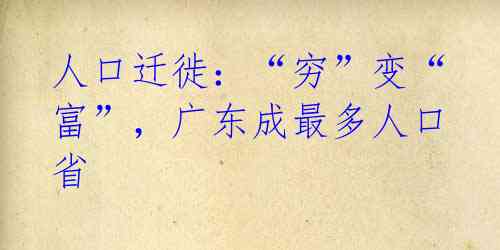 人口迁徙：“穷”变“
富”，广东成最多人口
省